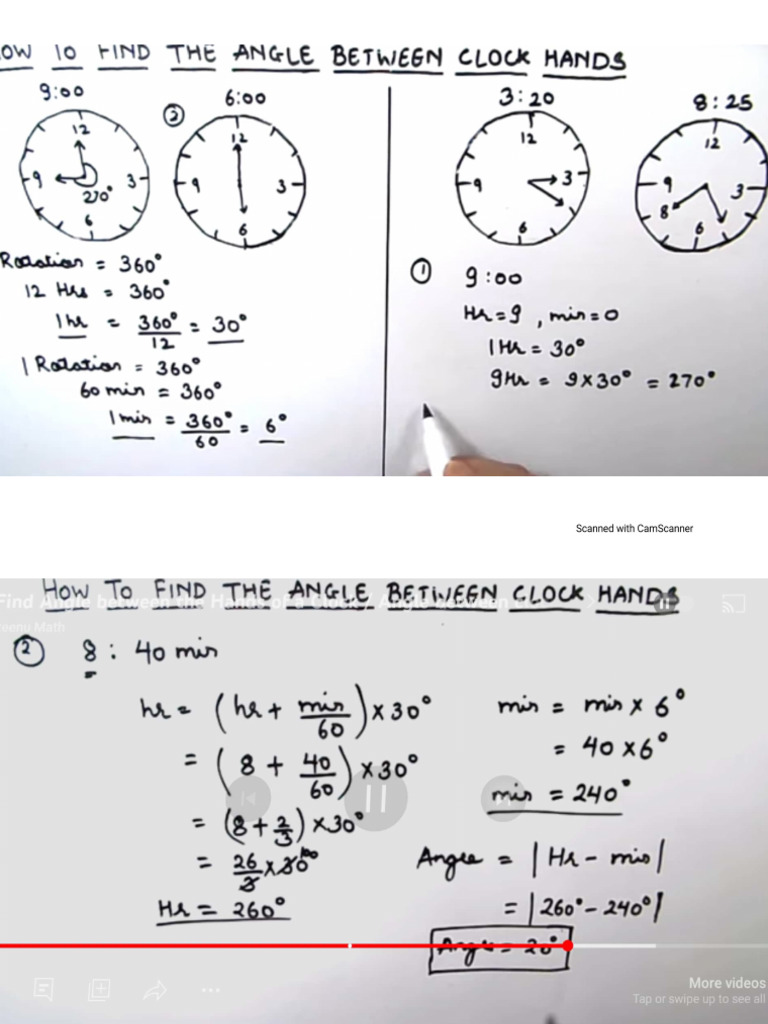 OW TO FIND THE ANGLE BETWEEN CLOCK HANDS
9:00
② 6:00
3:20
8:25
12
9 3
270°
6
12
9 3
6
12
9 3
6
12
9 3
8
6
Rotation = 360°
12 Hrs = 360°
1hr = 360°/12 = 30°
1 Rotation = 360°
60 min = 360°
1 min = 360°/60 = 6°
① 9:00
Hr=9 , min=0
1Hr = 30°
9Hr = 9×30° = 270°
Scanned with CamScanner
HOW TO FIND THE ANGLE BETWEEN CLOCK HANDS
Find Angle between the Hands of a Clock / Angle between cl
eenu Math
② 8 : 40 min
hr = (hr + min/60) × 30°
= (8 + 40/60) × 30°
= (8 + 2/3) × 30°
= 26/3 × 30°
Hr = 260°
min = min × 6°
= 40 × 6°
min = 240°
Angle = |Hr - min|
= |260° - 240°|
Angle = 20°
More videos
Tap or swipe up to see all